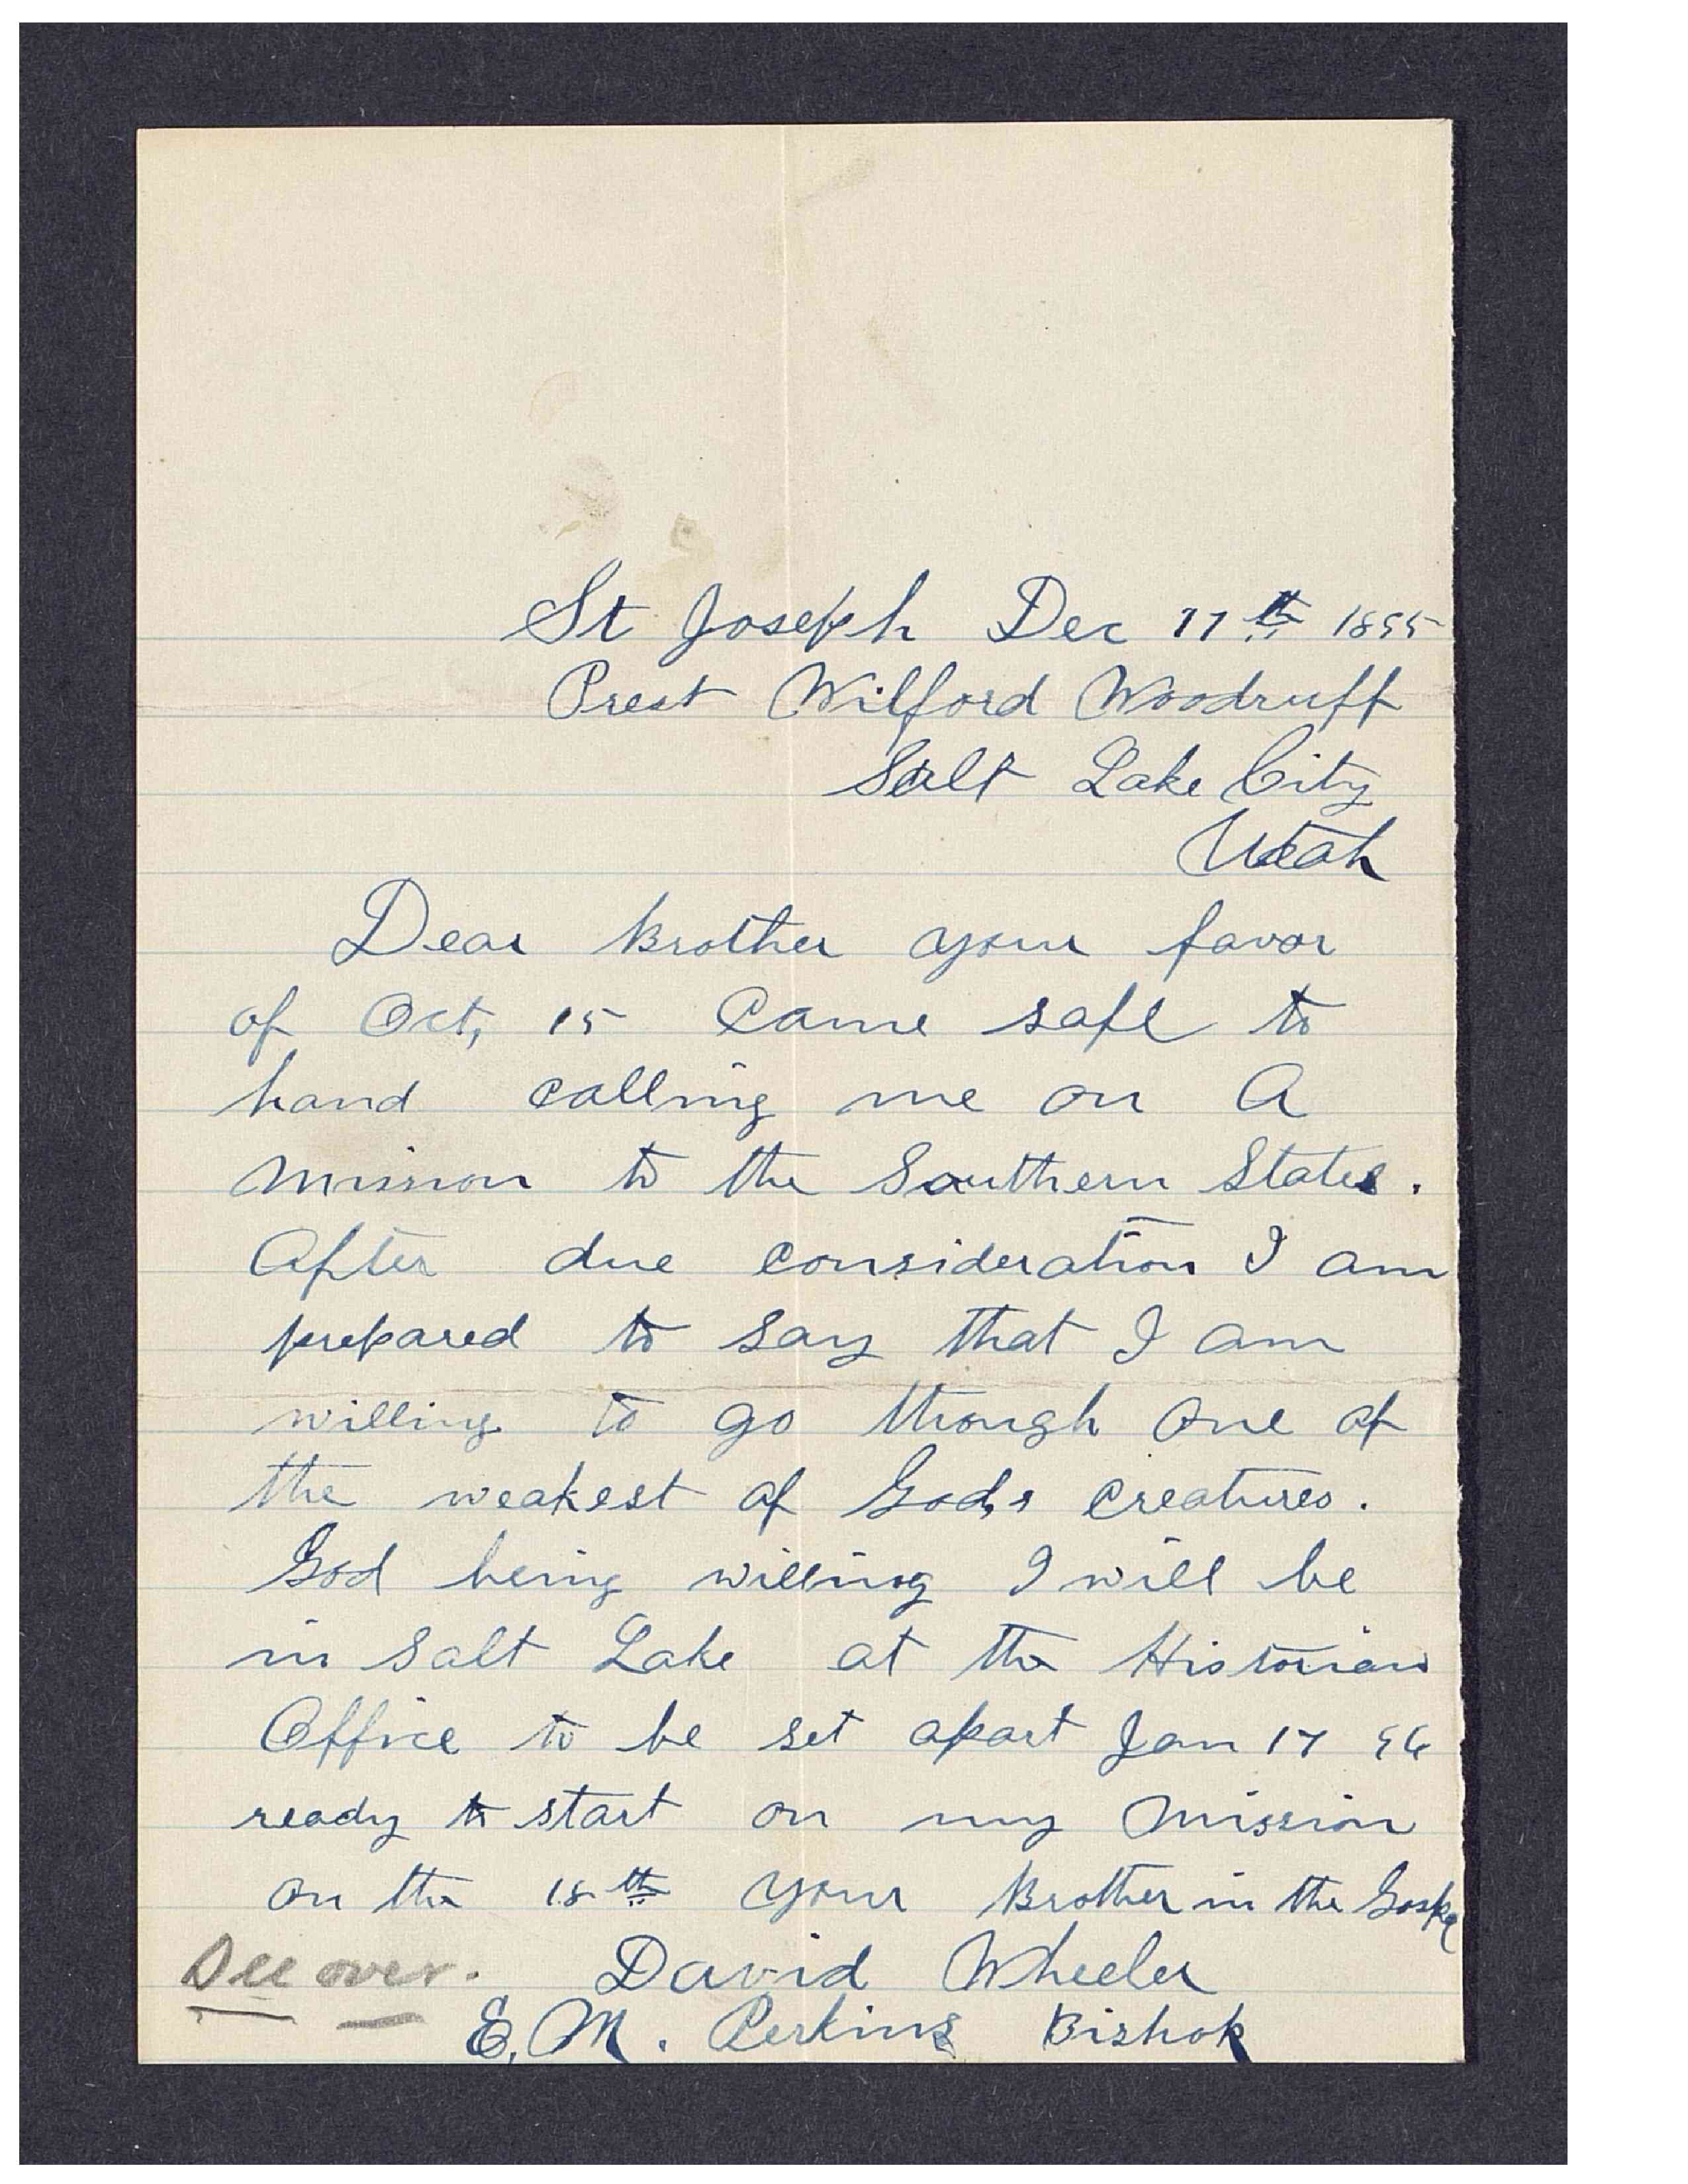 St Joseph Dec 17th 1895
Prest Wilford Woodruff
Salt Lake City
Utah
Dear Brother your favor
of Oct, 15 Came safe to
hand calling me on A
Mission to the Southern States.
After due consideration I am
prepared to say that I am
willing to go though one of
the weakest of God,s creatures.
God being willing I will be
in Salt Lake at the Historians
Office to be set apart Jan 17 96
ready to start on my Mission
on the 18th your Brother in the Gospel
See over. David Wheeler
E. M. Perkins Bishop